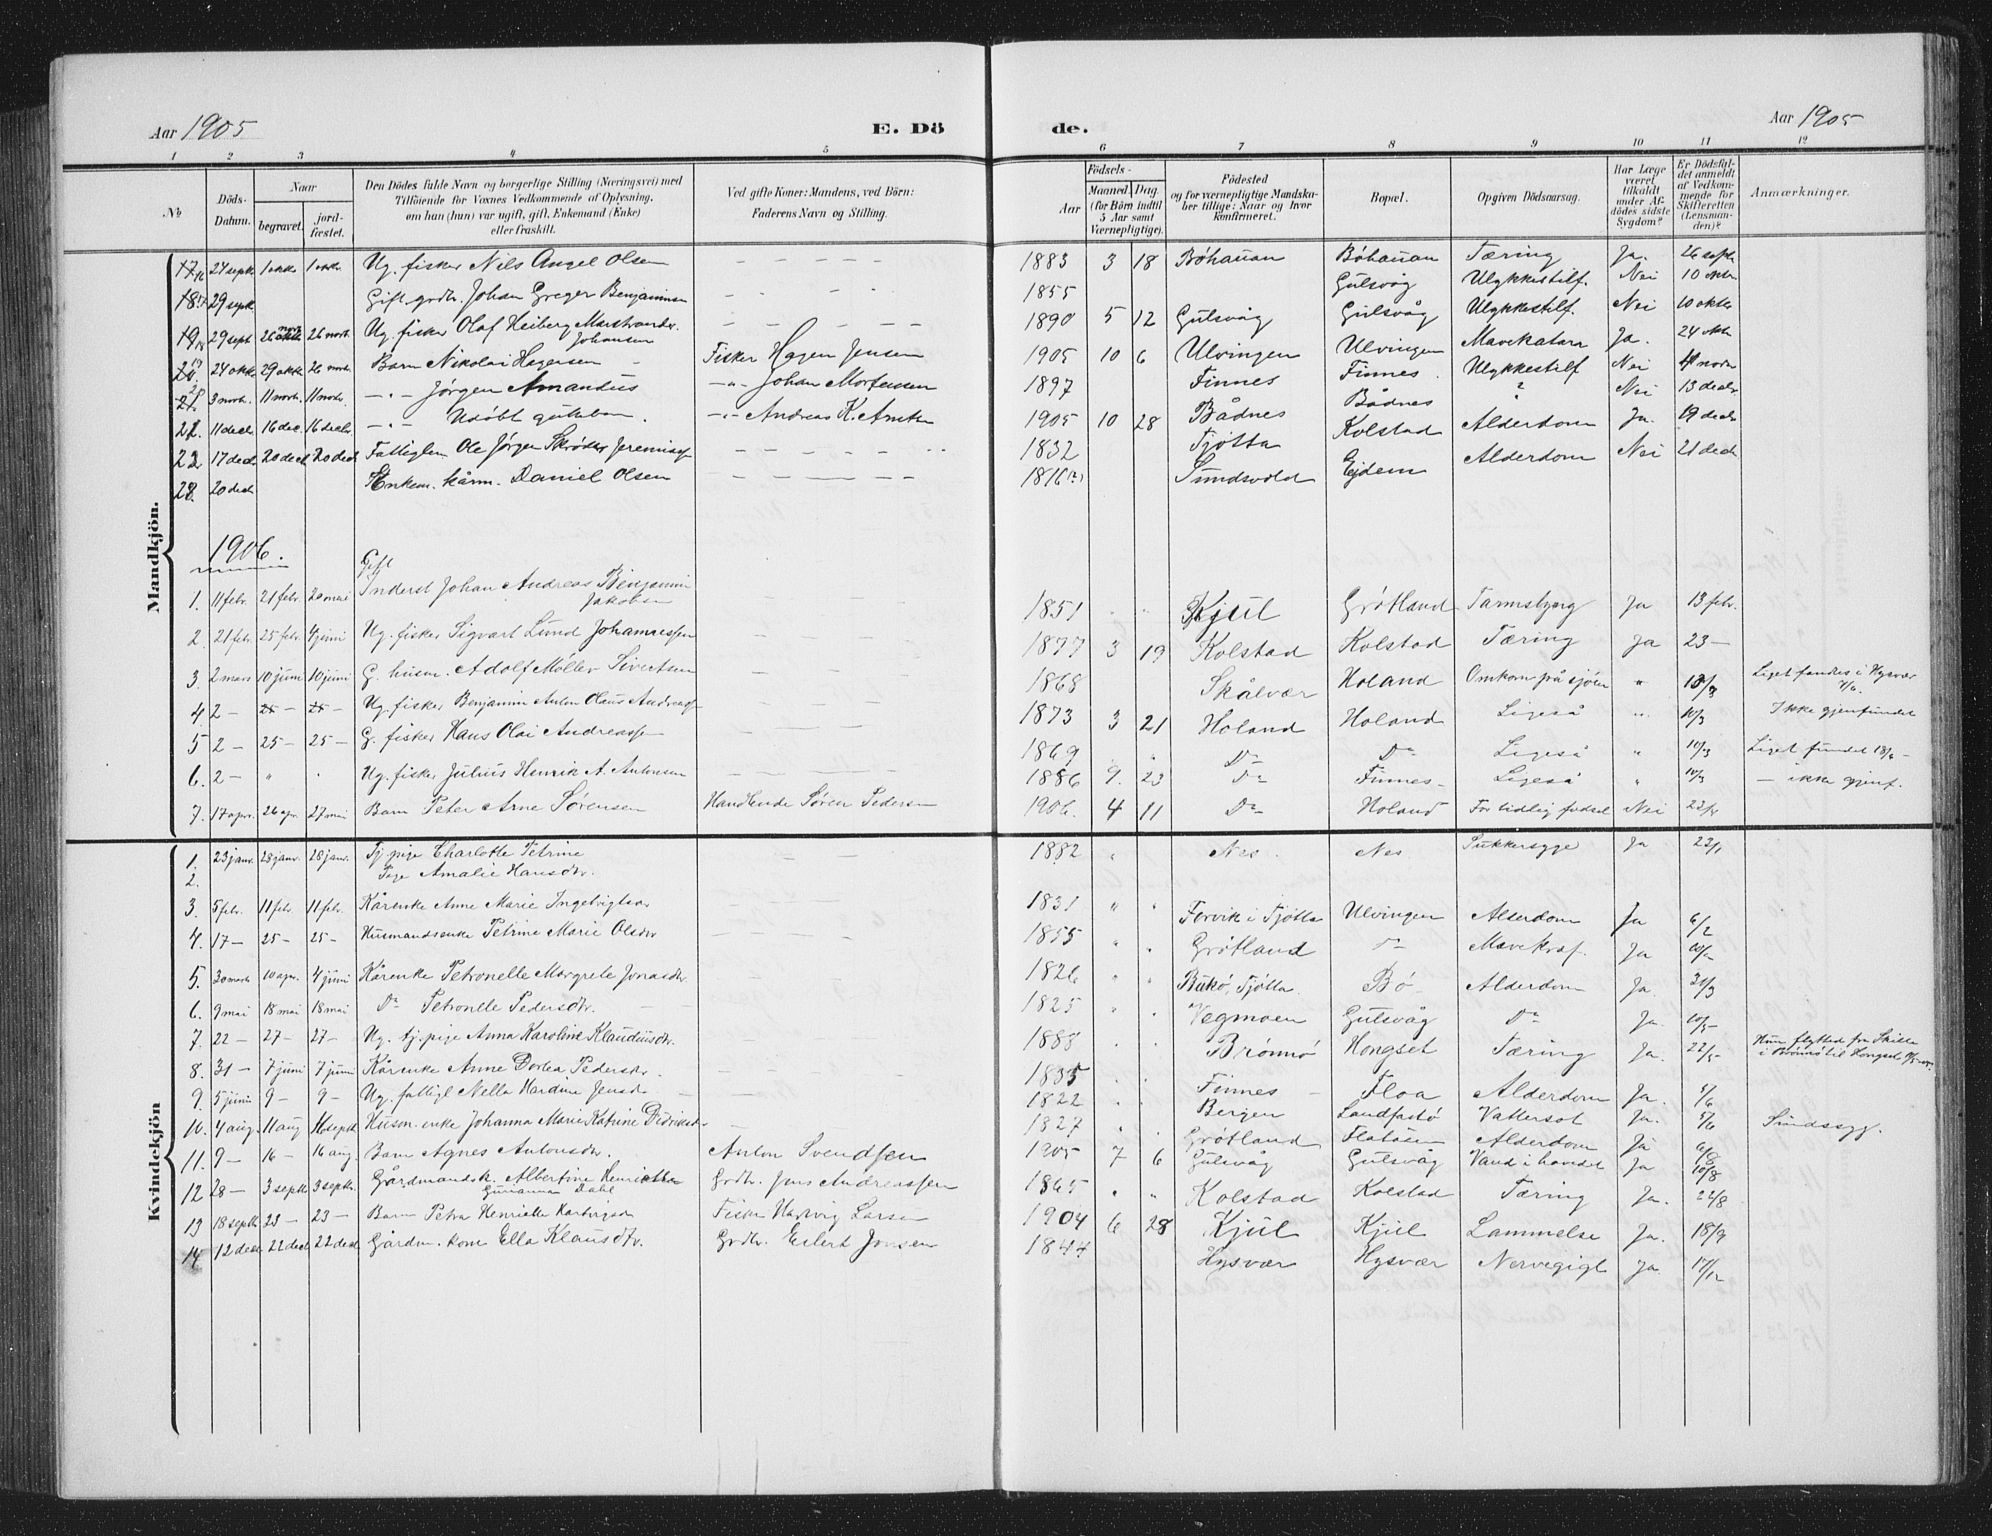 Aar 1905
E. Dö
de.
Aar 1905
1 2 3 4 5 6 7 8 9 10 11 12
№
Döds-Datum.
Naar
begravet.
jordfæstet.
Den Dödes fulde Navn og borgerlige Stilling (Næringsvei) med
Tilföiende for Voxnes Vedkommende af Oplysning,
om han (hun) var ugift, gift, Enkemand (Enke)
eller fraskilt.
Ved gifte Koner: Mandens, ved Börn:
Faderens Navn og Stilling.
Födsels-
Aar
Maaned. Dag.
(for Börn indtil
5 Aar samt
Værnepligtige).
Födested
og for værnepligtige Mandska-
ber tillige: Naar og hvor
konfirmeret.
Bopæl.
Opgiven Dödsaarsag.
Har Læge
været
tilkaldt
under Af-
dödes sidste
Sygdom?
Er Dödsfal-
det anmeldt
af Vedkom-
mende for
Skifteretten
(Lensman-
den)?
Anmærkninger.
Mandkjön.
17 24 sept. 1 okt. 1 okt. Ug. fisker Nils Angel Olsen 1883 3 18 Bøhaúan Bøhaúan Tæring Ja. 26 sept.
18 29 sept. Gift grdbr. Johan Greger Benjaminsen 1855 Gúlsvåg Ulykkestilf. Nei 10 oktr.
19 29 sept. 26 novr. 26 novr. Ug. fisker Olaf Heiberg Marstrander Johansen 1890 5 12 Gúlsvåg Gúlsvåg Ulykkestilf. Nei 10 oktr.
20. 24 okt. 29 okt. 26 novr. Barn Nikolai Hagensen Fisker Hagen Jensen 1905 10 6 Ulvingen Ulvingen Mavekatarr Ja. 24 okt.
21. 3 novr. 11 novr. 11 novr. -"- Jørgen Amandus -"- Johan Mortensen 1897 Finnes Finnes. Ulykkestilf Nei 4 novr.
22. 11 decbr. 16 dec. 16 decbr. -"- Udøbt guttebarn. -"- Andreas K. 1905 10 28 Bådnes Bådnes ? Nei 13 decbr.
22 17 dec. 20 dec. 20 dec. Fattiglem Ole Jørgen 1832 Tjøtta Kolstad Alderdom Ja. 19 decbr.
23. 20 dec. Enkem. kårm. Daniel Olsen 1816 Sundsvold Ejdem Alderdom Nei 21 dec.
1906.
1. 11 febr. 21 febr. 20 mai Gift Inderst Johan Andreas Benjamin Jakobsen 1851 Kjúl Grøtland Tarmsbyrg Ja 13 febr.
2. 21 febr. 25 febr. 4 júni Ug. fisker Sigvart Lund Johannessen 1877 3 19 Kolstad Kolstad Tæring Ja 23 –
3. 2 mars 10 júni 10 júni G. húsm. Adolf Møller Sivertsen 1868 Skålvær Holand Omkom på sjøen " 10/3 Liget fandes i Hysvær
4 2 – 25 – 25 – Ug. fisker Benjamin Anton Olaus Andreass 1873 3 21 Holand Holand Ligeså " 10/3 Ikke gjenfundet
5 2 – 25 – 25 – G. fisker Hans Olai Andreass 1869 " Do Do Ligeså " 10/3 Liget fundet 18/6 –
6. 2 – " " Ug. fisker Július Henrik A. Antonsen 1886 9. 23 Do Finnes – Ligeså " 10/3 – ikke gjenf.
7. 17 apr. 26 apr. 27 mai Barn Peter Arne Sørensen Handlende Søren Pedersen 1906. 4 11 Do Holand For tidlig fødsel Nei 23/4
Kvindekjön
1. 23 janr. 28 janr. 28 janr. Tj.pige Charlotte Petrine 1882 " Nes. Nes Súkkersyge Ja 23/1
2. Pige Amalie Hansdtr.
3. 5 febr. 11 febr. 11 febr. Kårenke Anne Marie Ingebrigtsdr 1831 " " Forvik i Tjøtta Ulvingen Alderdom Ja 6/2
4. 17 – 25 – 25 – Húsmandsenke Petrine Marie Olsdr 1855 " " Grøtland Do Mavekræf. Ja 20/2
5. 30 mars 10 apr. 4 júni Kårenke Petronelle Margrete Jonasdr 1826 " " Búkø, Tjøtta. Bø Alderdom Ja. 31/3
6. 9 mai 18 mai 18 mai Do Petronelle Pedersdtr. 1825 " " Vegmoen Gúlsvåg Do Ja. 10/5
7. 22 – 27 – 27 – Ug. tj.pige Anna Karoline Klaudiusdtr. 1888 " " Brønnø Hongset Tæring Ja. 22/5 Hun flyttet fra Skille i Brønnø til Hongset
8. 31 – 7 júni 7 júni Kårenke Anne Dorlea Pedersdr. 1835 Finnes Floa Alderdom Ja. 5/6
9. 5 júni 9 – 9 – Ug. fattigl Nella Hardine Jensd 1822 Bergen Landfastø Vattersot Ja. 5/6 Sindssyg.
10. 4 aug. 11 aug 16 sept. Húsm.enke Johanna Marie Katrine Didriksdr 1827 Grøtland Flatøen Alderdom Ja 6/8
11. 9 – 16 – 16 aug. Barn Agnes Antonsdr. Anton Svendsen 1905 7 6 Gúlsvåg Gúlsvåg Vand i hovdet Ja 10/8
12 28 – 3 sept. 3 septr. Gårdmandsk. Albertine Henriette Gurianna Dahl Grdbr. Jens Andreassen 1865 " " Kolstad Kolstad Tæring Ja. 24/8
13 18 sept. 23 – 23 – Barn Petra Henriette Hartvigsd Fisker Hartvig Larsen 1904 6 28 Kjúl Kjúl Lammelse Ja. 18/9
14 12 dec. 22 dec. 22 dec. Gårdm. kone Ella Klausdtr. Grdbr. Eilert Jensen 1844 Hysvær Hysvær Nervegigt Ja 17/12